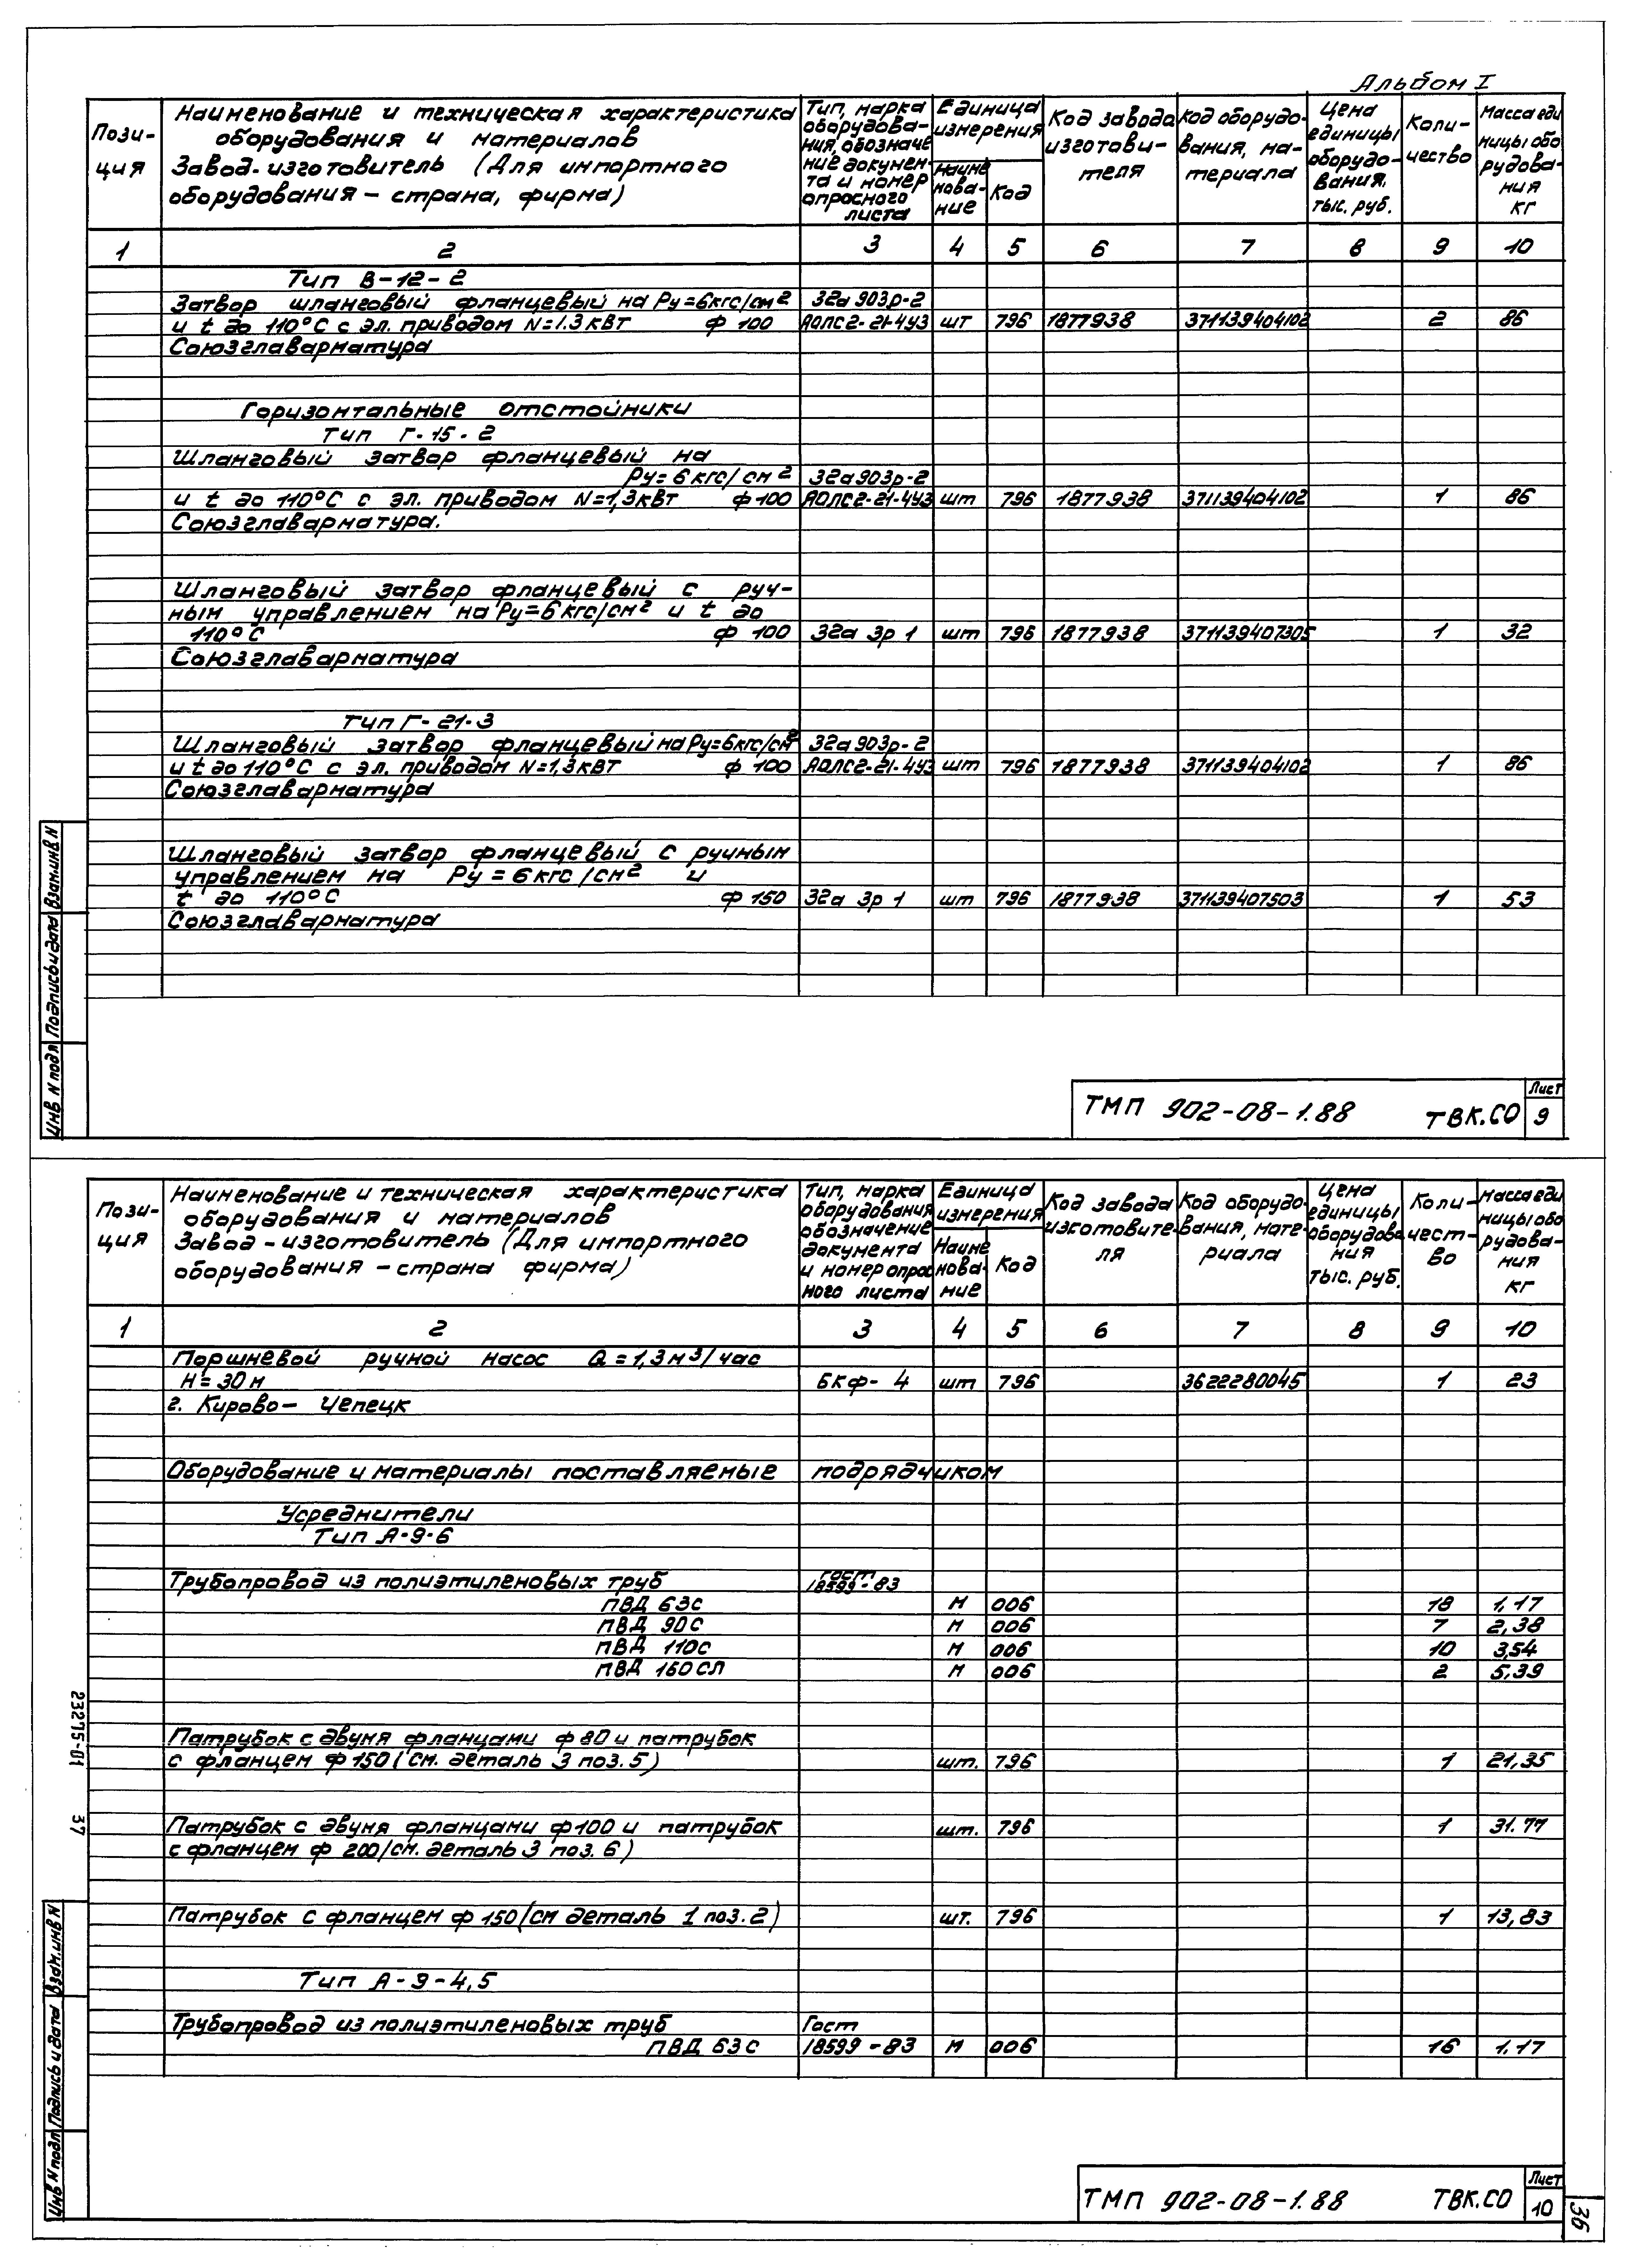 Альбом I
Пози-
ция
Наименование и техническая характеристика
оборудования и материалов
Завод-изготовитель (Для импортного
оборудования – страна, фирма)
Тип, марка
оборудова-
ния, обозначе
ние докумен-
та и номер
опросного
листа
Единица
измерения
Наиме
нова-
ние
Код
Код завода
изготови-
теля
Код оборудо-
вания, ма-
териала
Цена
единицы
оборудо-
вания,
тыс. руб.
Коли-
чество
Масса еди
ницы обо
рудова-
ния
кг
1 2 3 4 5 6 7 8 9 10
Тип В-12-2
Затвор шланговый фланцевый на Ру=6кгс/см² 32а903р-2
и t до 110°С с эл. приводом N=1.3кВт ф 100 АОЛС2-21-4У3 шт 796 1877938 371139404102 2 86
Союзглаварматура
Горизонтальные отстойники
Тип Г-15-2
Шланговый затвор фланцевый на
Ру=6кгс/см² 32а903р-2
и t до 110°С с эл. приводом N=1,3кВт ф100 АОЛС2-21-4У3 шт 796 1877938 371139404102 1 86
Союзглаварматура.
Шланговый затвор фланцевый с руч-
ным управлением на Ру=6кгс/см² и t до
110°С ф 100 32а 3р 1 шт 796 1877938 371139407305 1 32
Союзглаварматура
Тип Г-21-3
Шланговый затвор фланцевый на Ру=6кгс/см² 32а903р-2
и t до 110°С с эл. приводом N=1,3кВт ф 100 АОЛС2-21-4У3 шт 796 1877938 371139404102 1 86
Союзглаварматура
Шланговый затвор фланцевый с ручным
управлением на Ру=6кгс/см² и
t до 110°С ф 150 32а 3р 1 шт 796 1877938 371139407503 1 53
Союзглаварматура
Инв N подл Подпись и дата Взам.инв N
ТМП 902-08-1.88 ТВК.СО
Лист
9
Пози-
ция
Наименование и техническая характеристика
оборудования и материалов
Завод-изготовитель (Для импортного
оборудования – страна фирма)
Тип, марка
оборудования
обозначение
документа
и номер опрос
ного листа
Единица
измерения
Наиме
нова-
ние
Код
Код завода
изготовите-
ля
Код оборудо-
вания, мате-
риала
Цена
единицы
оборудова
ния
тыс. руб.
Коли-
чест-
во
Масса еди
ницы обо
рудова-
ния
кг
1 2 3 4 5 6 7 8 9 10
Поршневой ручной насос Q=1,3м³/час
Н=30м БКФ-4 шт 796 3622280045 1 23
г. Кирово-Чепецк
Оборудование и материалы поставляемые подрядчиком
Усреднители
Тип А-9-6
Трубопровод из полиэтиленовых труб ГОСТ 18599-83
ПВД 63с м 006 18 1,17
ПВД 90с м 006 7 2,38
ПВД 110с м 006 10 3,54
ПВД 160сл м 006 2 5,39
Патрубок с двумя фланцами ф 80 и патрубок
с фланцем ф 150 (см. деталь 3 поз.5) шт. 796 1 21,35
Патрубок с двумя фланцами ф100 и патрубок шт. 796 1 31.77
с фланцем ф 200 (см. деталь 3 поз. 6)
Патрубок с фланцем ф 150 (см деталь 1 поз.2) шт. 796 1 13,83
Тип А-9-4,5
Трубопровод из полиэтиленовых труб Гост
ПВД 63с 18599-83 м 006 16 1.17
23275-01 37
Инв N подл Подпись и дата Взам.инв N
ТМП 902-08-1.88 ТВК.СО
Лист
10
36